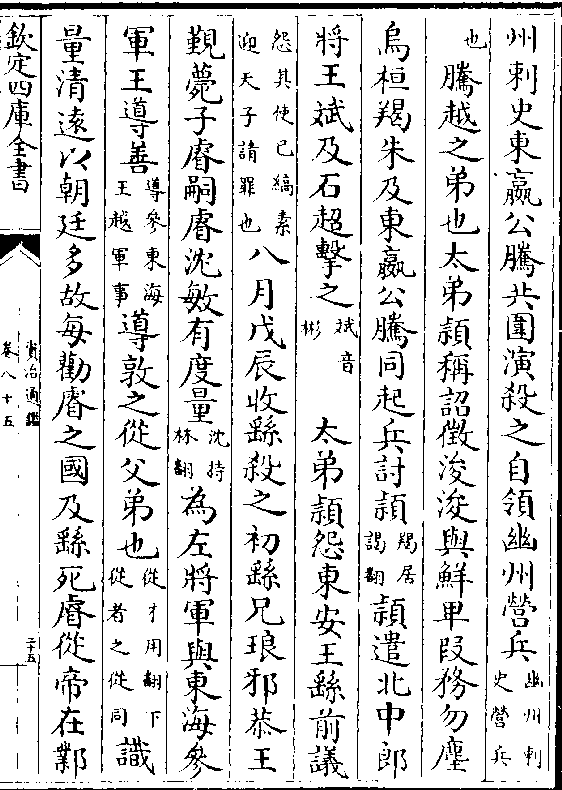 州刺史東嬴公騰共圍演殺之自領幽州營兵幽州刺史營兵
也騰越之弟也太弟穎稱詔徵浚浚與鮮卑段務勿塵
烏桓羯朱及東嬴公騰同起兵討穎羯居謁翻穎遣北中郎
將王斌及石超擊之斌音彬太弟穎怨東安王繇前議
怨其使已縞素迎天子請罪也八月戊辰收繇殺之初繇兄琅邪恭王
覲薨子睿嗣睿沈敏有度量沈持林翻為左將軍與東海參
軍王導善導參東海王越軍事導敦之從父弟也從才用翻下從者之從同識
量清遠以朝廷多故每勸睿之國及繇死睿從帝在鄴
欽定四庫全書
資治通鑑
卷八十五
二十五